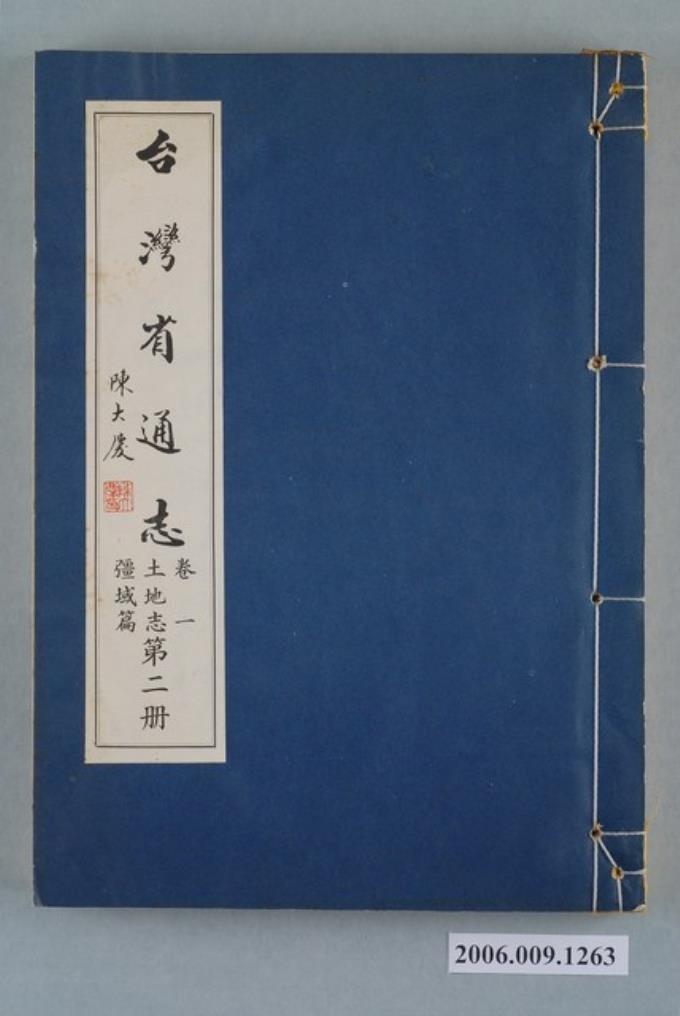 台灣省通志
卷一
土地志第二册
彊域篇
陳大慶
2006.009.1263